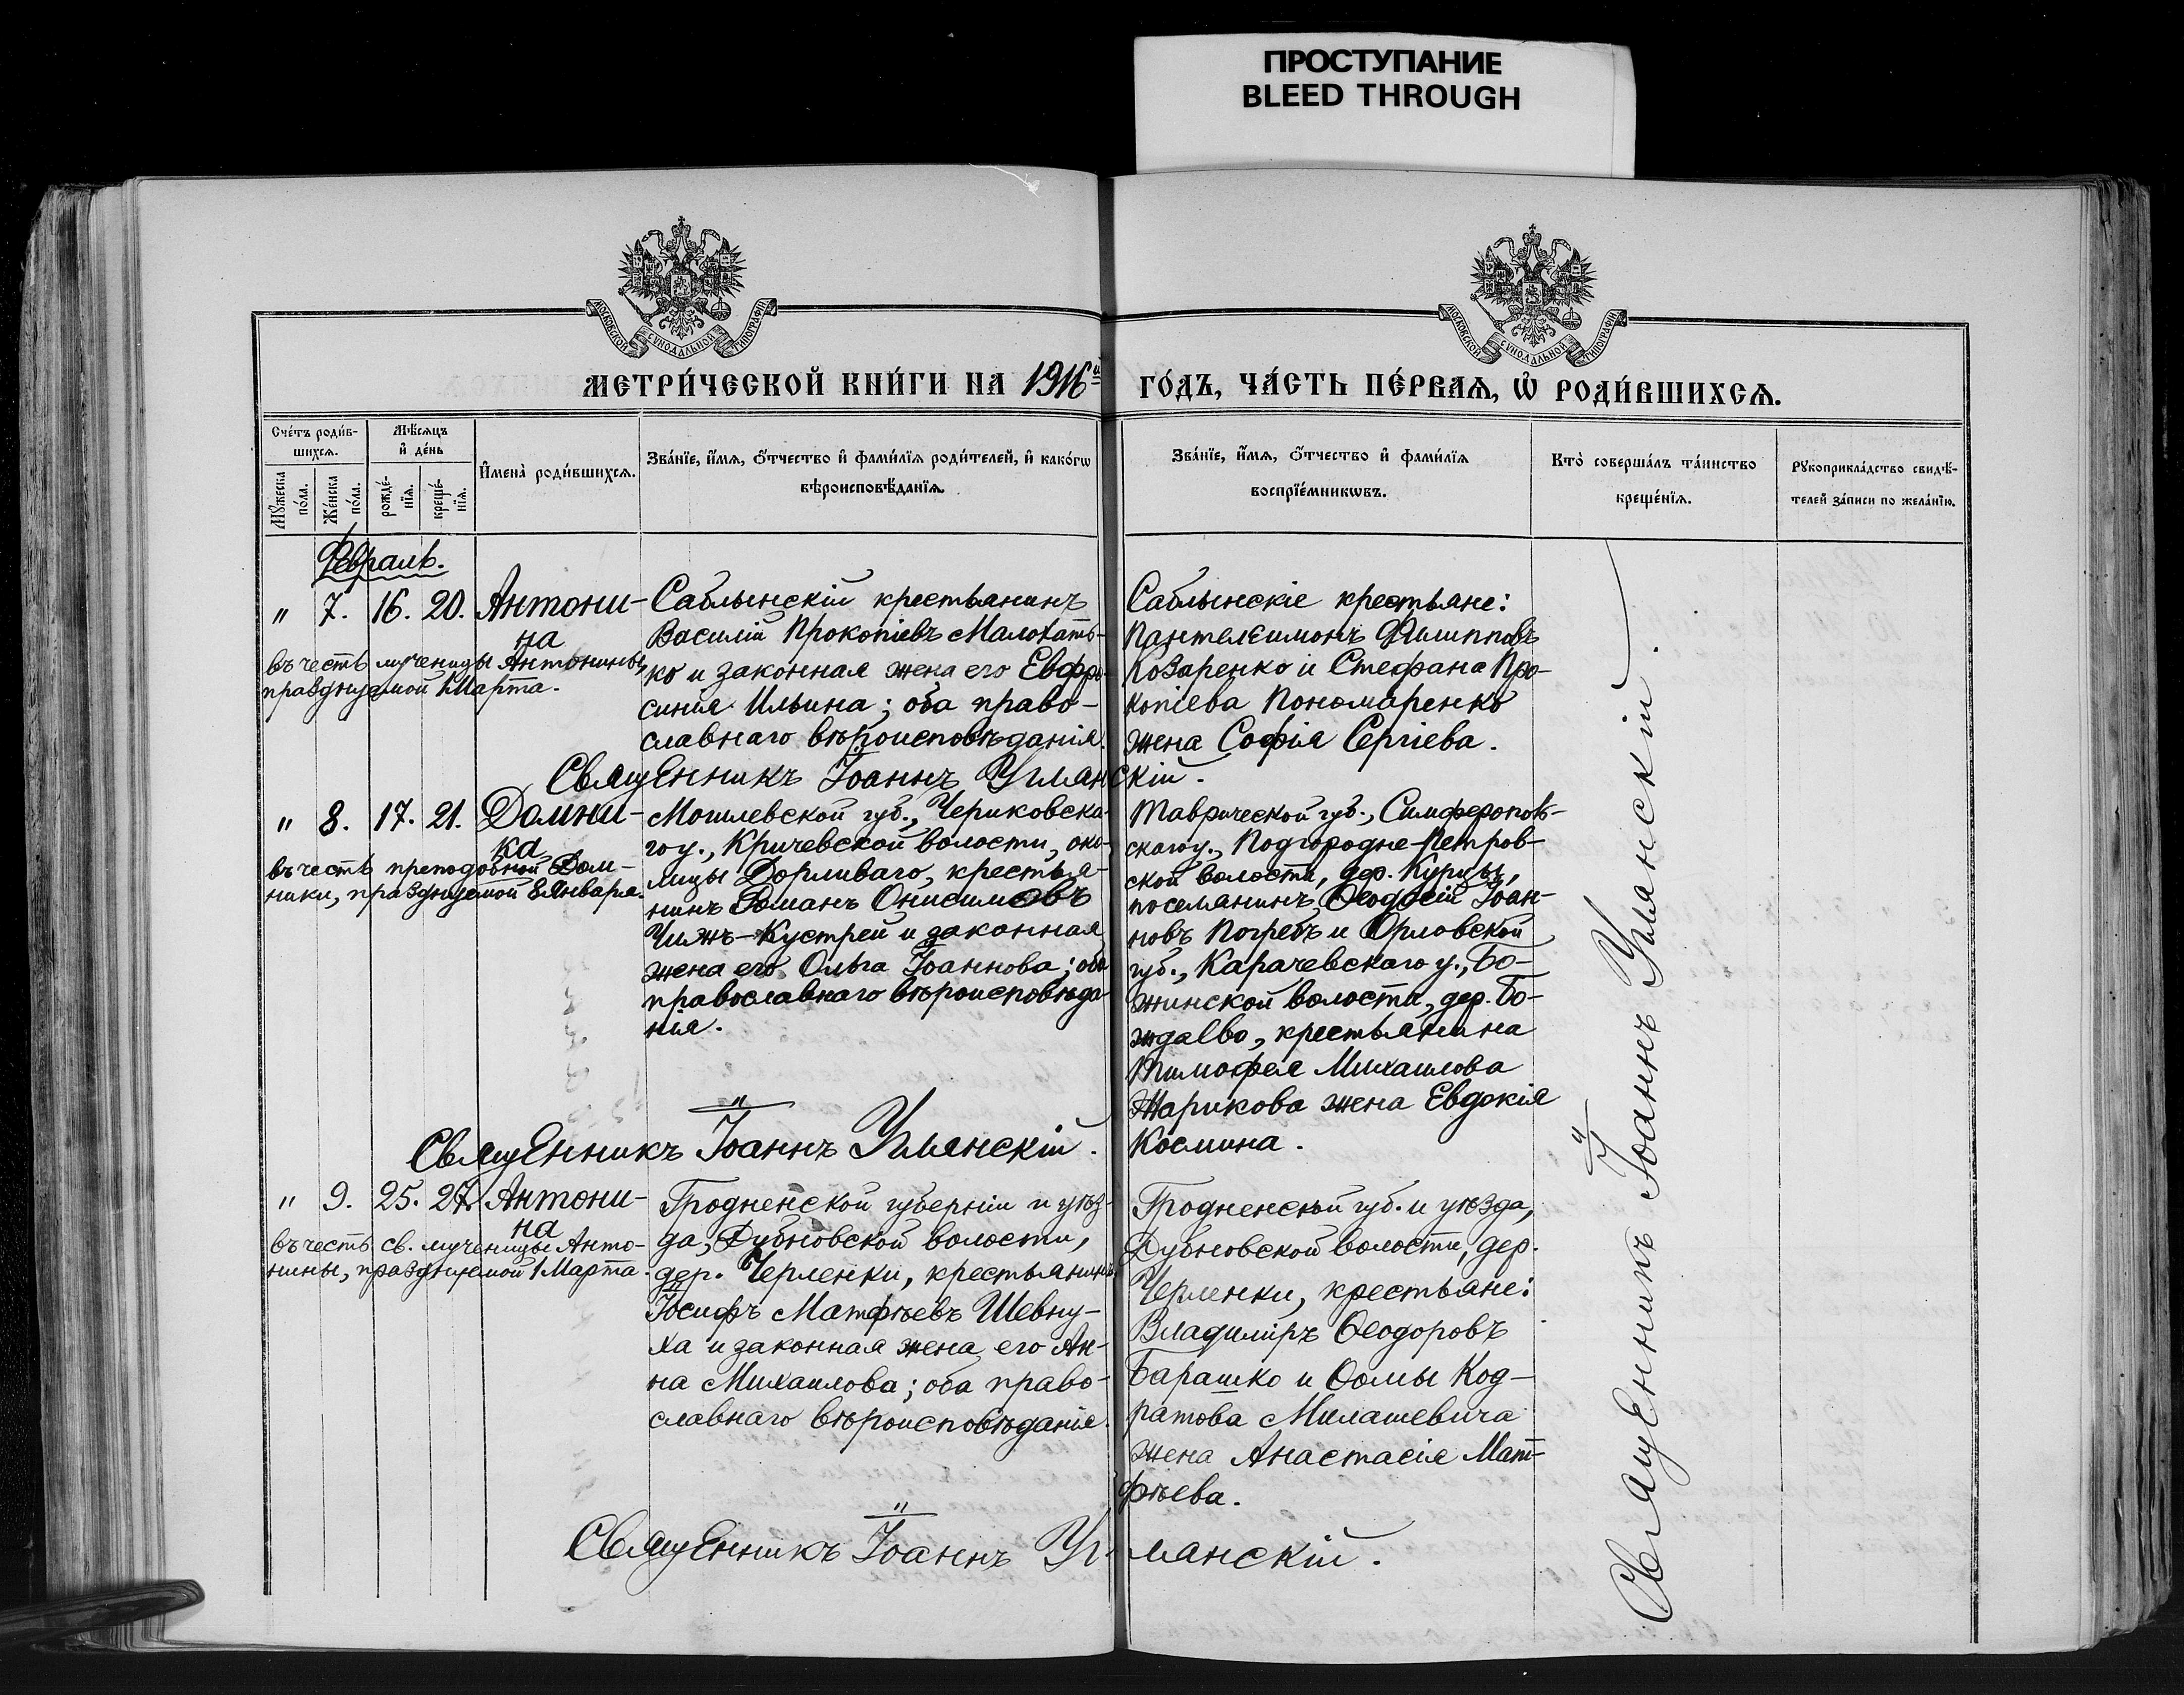 ПРОСТУПАНИЕ
BLEED THROUGH
МОСКОВСКОЙ СУНОДАЛЬНОЙ ТИПОГРАФІИ
МОСКОВСКОЙ СУНОДАЛЬНОЙ ТИПОГРАФІИ
МЕТРИ́ЧЕСКОЙ КНИ́ГИ НА 1916й ГО́ДЪ, ЧА́СТЬ ПЕ́РВАѦ, Ѡ҆ РОДИ́ВШИХСѦ.
Сче́тъ роди́в-
шихсѧ.
Мѣ́сѧцъ
и҆ де́нь
Мꙋ́жеска
по́ла.
Же́нска
по́ла.
рожде́-
нїѧ.
креще́-
нїѧ.
И҆мена̀ роди́вшихсѧ.
Зва́нїе, и҆́мѧ, ѻ҆́тчество и҆ фами́лїѧ роди́телей, и҆ како́гѡ
вѣроисповѣ́данїѧ.
Зва́нїе, и҆́мѧ, ѻ҆́тчество и҆ фами́лїѧ
воспрїе́мникѡвъ.
Кто̀ соверша́лъ та́инство
креще́нїѧ.
Рꙋкоприкла́дство свидѣ́-
телей за́писи по жела́нїю.
Февраль.
" 7. 16. 20. Антони-
на
въ честь мученицы Антонины,
празднуемой 1 Марта.
Саблынскій крестьянинъ
Василій Прокопіевъ Малохать-
ко и законная жена его Евфро-
синія Ильина; оба право-
славнаго вѣроисповѣданія.
Саблынскіе крестьяне:
Пантелеимонъ Филипповъ
Козаренко и Стефана Про-
копіева Пономаренко
жена Софія Сергіева.
Священникъ Іоаннъ Углянскій.
" 8. 17. 21. Домни-
ка
въ честь преподобной Дом-
ники, празднуемой 8 Января.
Могилевской губ., Чериковска-
го у., Кричевской волости, око-
лицы Дорливаго, крестья-
нинъ Романъ Онисимовъ
Чижъ-Кустрей и законная
жена его Ольга Іоаннова; оба
православнаго вѣроисповѣда-
нія.
Таврической губ., Симферополь-
скаго у., Подгородне-Петров-
ской волости, дер. Курцы,
поселянинъ Ѳеодосій Іоан-
новъ Погребъ и Орловской
губ., Карачевскаго у., Бо-
жинской волости, дер. Бо-
ждаево, крестьянина
Тимофея Михаилова
Жарикова жена Евдокія
Космина.
Священникъ Іоаннъ Углянскій.
" 9. 25. 27. Антони-
на
въ честь св. мученицы Анто-
нины, празднуемой 1 Марта.
Гродненской губерніи и уѣз-
да, Дубновской волости,
дер. Черленки, крестьянинъ
Іосифъ Матфѣевъ Шевну-
ха и законная жена его Ан-
на Михаилова; оба право-
славнаго вѣроисповѣданія.
Гродненской губ. и уѣзда,
Дубновской волости, дер.
Черленки, крестьяне:
Владиміръ Ѳеодоровъ
Барашко и Ѳомы Код-
ратова Милашевича
жена Анастасія Мат-
фѣева.
Священникъ Іоаннъ Углянскій.
Священникъ Іоаннъ Углянскій.